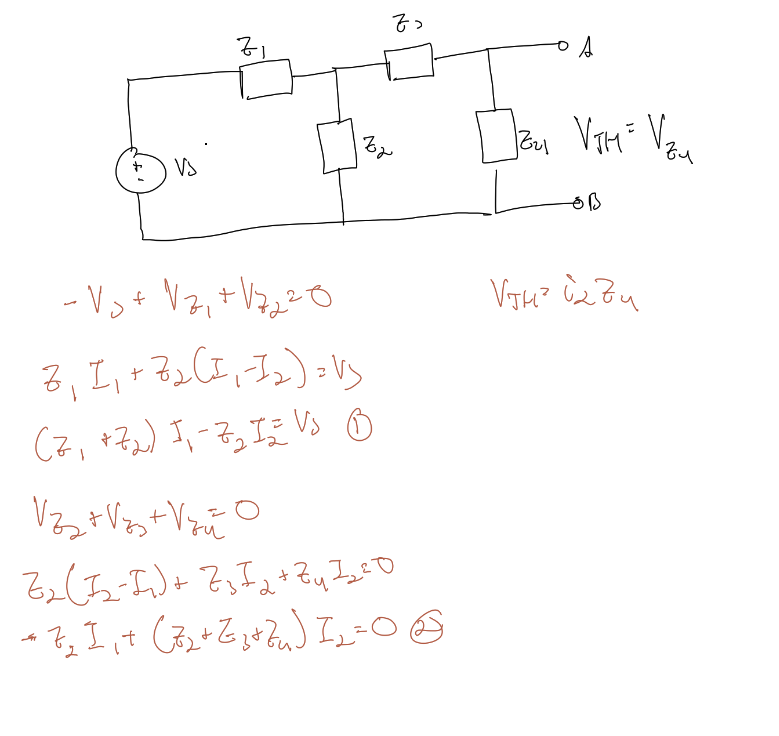 Z₃
Z₁
A
Z₂
Z₄
V_TH = V_Z₄
+
-
Vs
B
-Vs + V_Z₁ + V_Z₂ = 0
V_TH = i₂Z₄
Z₁ I₁ + Z₂(I₁-I₂) = Vs
(Z₁ + Z₂) I₁ - Z₂I₂ = Vs ①
V_Z₂ + V_Z₃ + V_Z₄ = 0
Z₂(I₂-I₁) + Z₃I₂ + Z₄I₂ = 0
-Z₂I₁ + (Z₂+Z₃+Z₄) I₂ = 0 ②